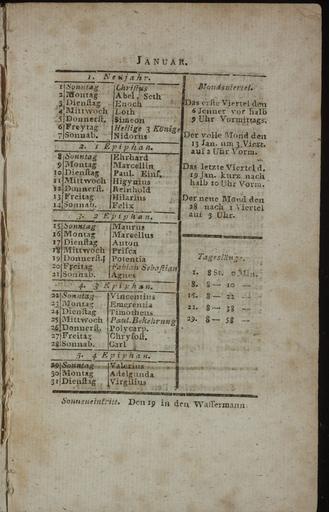 JANUAR.
1. Neujahr.
1 Sonntag Christus
2 Montag Abel, Seth
3 Dienstag Enoch
4 Mittwoch Loth
5 Donnerst. Simeon
6 Freytag Heilige 3 Könige
7 Sonnab. Nidorus
2. 1 Epiphan.
8 Sonntag Ehrhard
9 Montag Marcellin
10 Dienstag Paul. Eins.
11 Mittwoch Higynius
12 Donnerst. Reinhold
13 Freitag Hilarius
14 Sonnab. Felix
3. 2 Epiphan.
15 Sonntag Maurus
16 Montag Marcellus
17 Dienstag Anton
18 Mittwoch Prisca
19 Donnerst. Potentia
20 Freitag Fabian Sebastian
21 Sonnab. Agnes
4. 3 Epiphan.
22 Sonntag Vincentius
23 Montag Emerentia
24 Dienstag Timotheus
25 Mittwoch Paul. Bekehrung
26 Donnerst. Polycarp.
27 Freitag Chrysost.
28 Sonnab. Carl
5. 4 Epiphan.
29 Sonntag Valerius
30 Montag Adelgunda
31 Dienstag Virgilius
Mondsviertel.
Das erste Viertel den
6 Jenner vor halb
9 Uhr Vormittags.
Der volle Mond den
13 Jan. um 3 Viert.
auf 2 Uhr Vorm.
Das letzte Viertel d.
19 Jan. kurz nach
halb 10 Uhr Vorm.
Der neue Mond den
28 nach 1 Viertel
auf 3 Uhr.
Tageslänge.
1. 8 St. 0 Min.
8. 8 — 10 —
15. 8 — 22 —
21. 8 — 38 —
29. 8 — 58 —
Sonneneintritt. Den 19 in den Wassermann